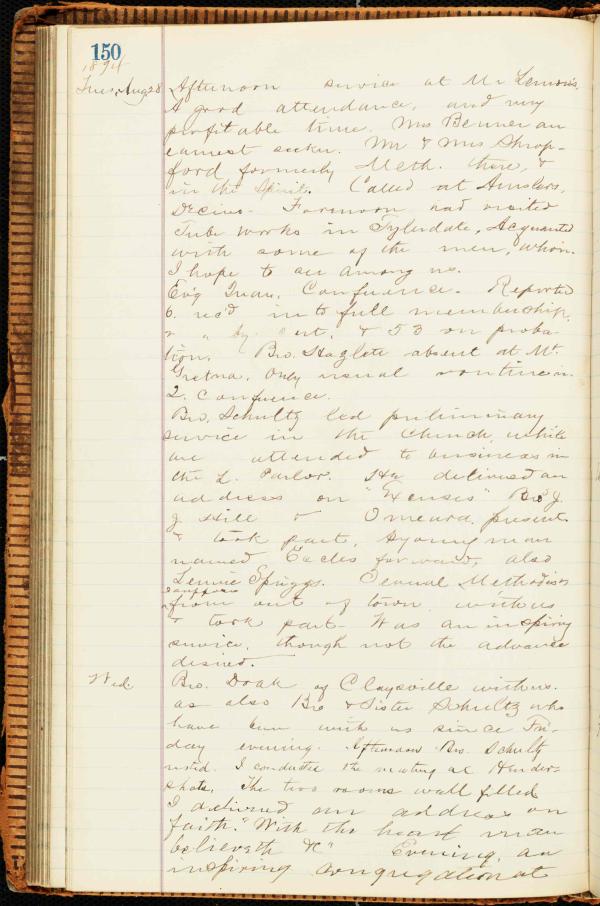 150
1894
Tues, Aug 28 Afternoon service at Mr Lemon's.
A good attendance, and very
profitable time. Mrs Benner an
earnest seeker. Mr & Mrs Shrop-
ford formerly Meth. there, &
in the Spirit. Called at
Forenoon had visited
Tube works in Tylerdale, Acquainted
with some of the men, whom
I hope to see among us.
Ev'g Quar. Conference. Reported
6 rec'd into full membership,
2 " by cert. & 53 on proba-
tion. Bro. Hazlett absent at Mt.
Gretna. Only usual routine in
Q. Conference.
Bro. Schultz led preliminary
service in the church, while
we attended to business in
the L. Parlor. He delivered an
address on "Excuses" Bro J.
J. Hill & Omeara, present
& took part. A young man
named Eccles forward, also
Lennie Spriggs. Several Methodists
from out of town, with us
& took part. Was an inspiring
service, though not the advance
desired.
Wed. Bro. Doak of Claysville with us.
as also Bro & Sister Schultz who
have been with us since Fri-
day evening. Afternoon Bro. Schultz
rested. I conducted the meeting at Hender-
shots. The two rooms well filled
I delivered an address on
faith. "With the heart man
believeth &c" Evening, an
inspiring congregation at